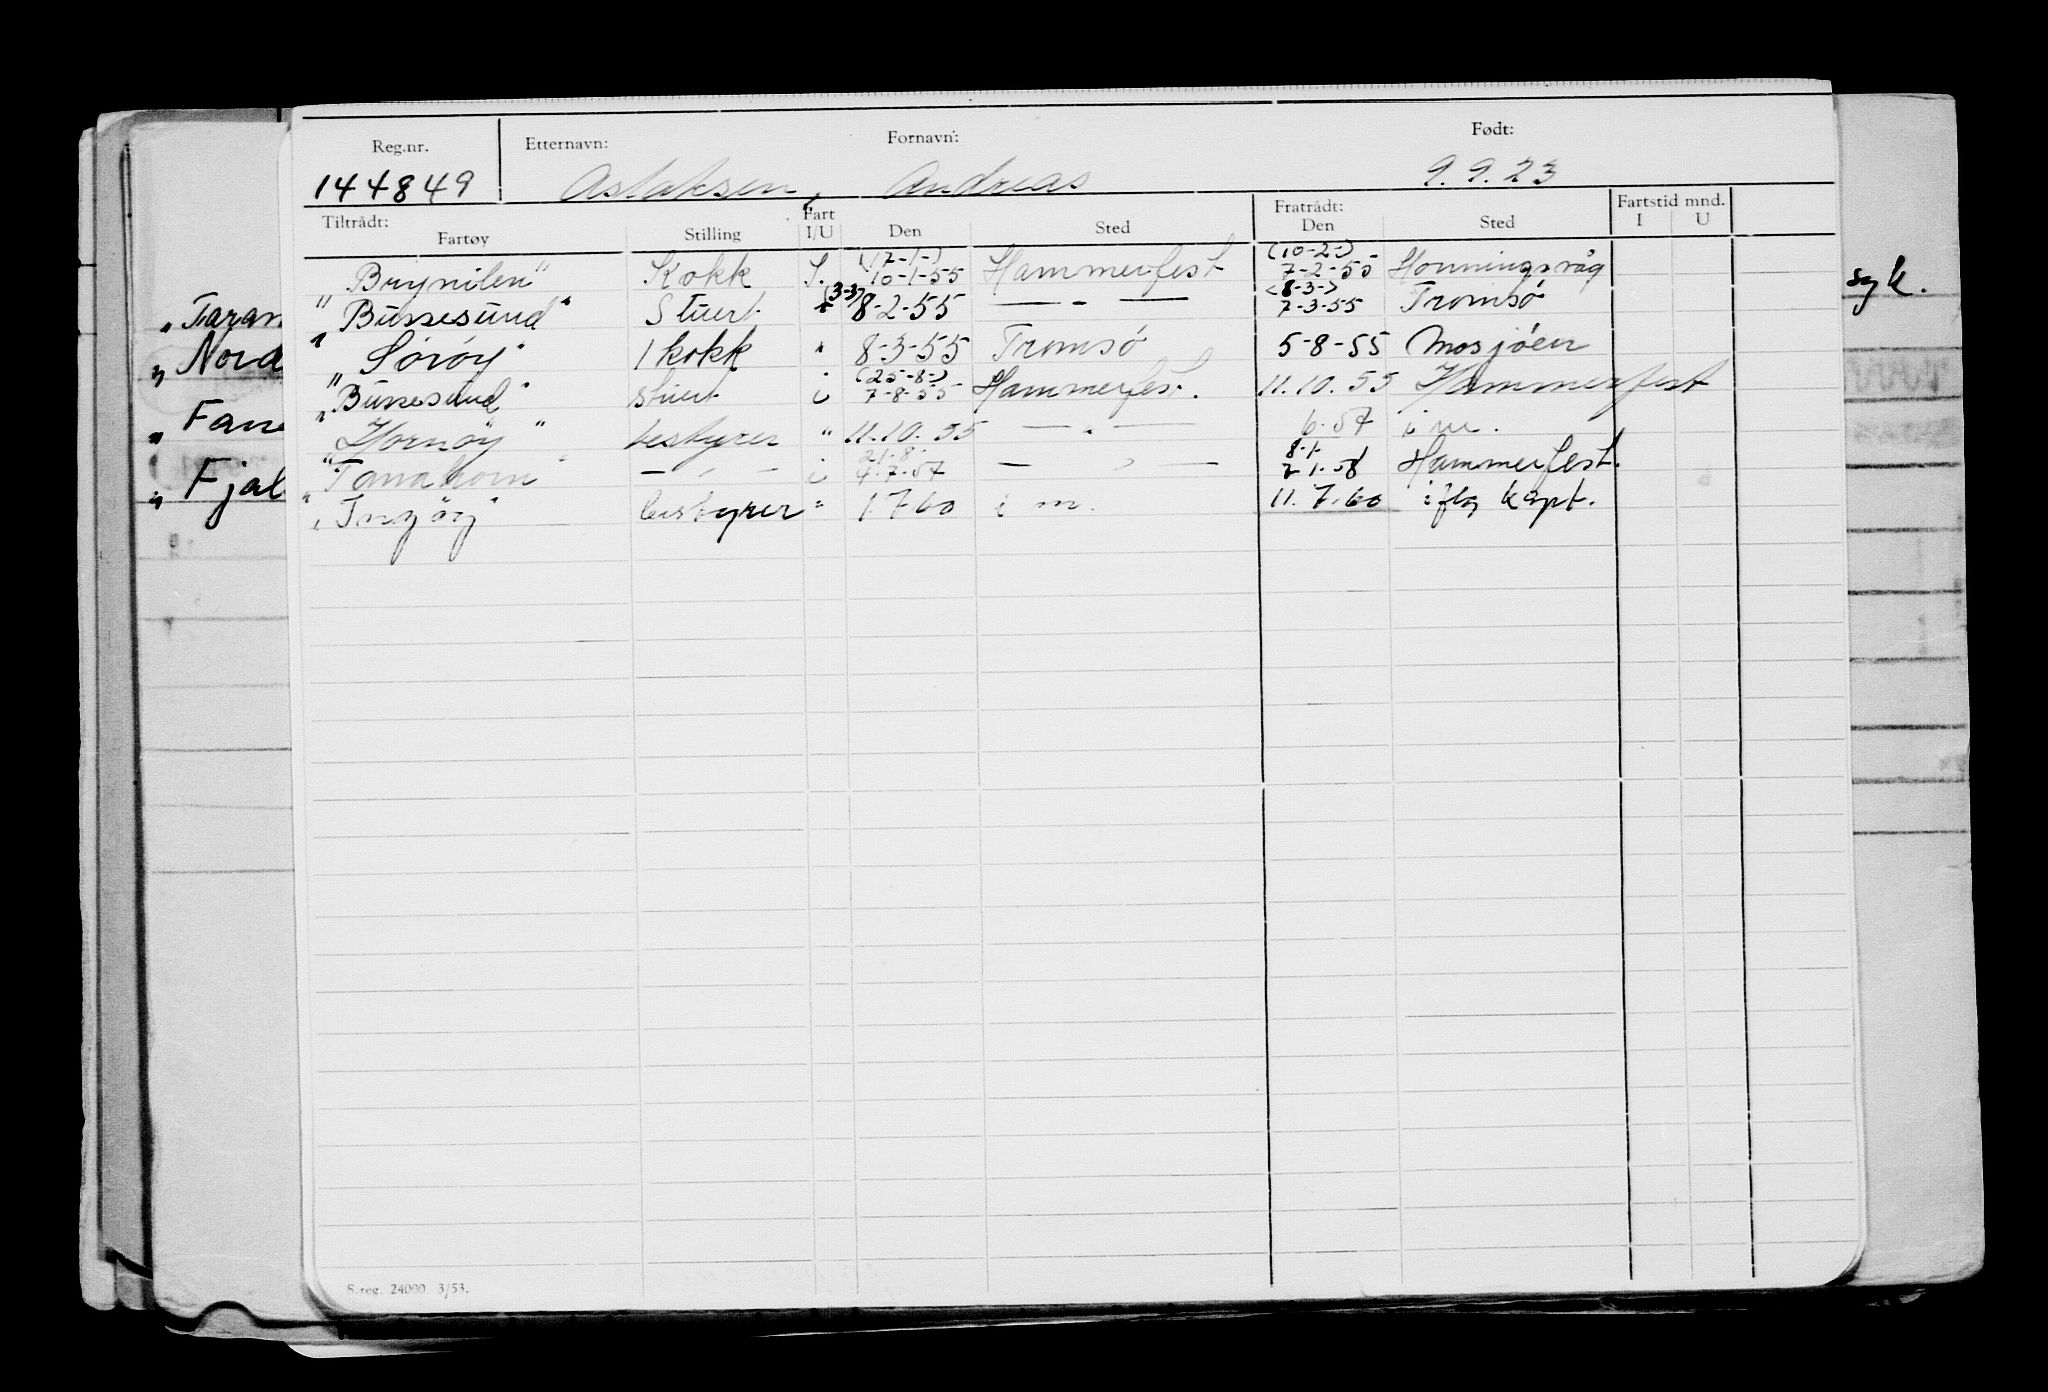 Reg.nr. Etternavn: Fornavn: Født:
144849 Aslaksen, Andreas 9.9.23
Tiltrådt: Fart Fratrådt: Fartstid mnd.
Fartøy Stilling I/U Den Sted Den Sted I U
(17-1-) (10-2-)
"Brynilen" Kokk I. 10-1-55 Hammerfest 7-2-55 Honningsvåg
(3-3) (8-3-)
"Bussesund" Stuert 8-2-55 — " — 7-3-55 Tromsö
"Söröy" 1 kokk " 8-3-55 Tromsö 5-8-55 Mosjöen
(25-8-)
"Bussesund" Stuert i 7-8-55 Hammerfest. 11.10.55 Hammerfest
"Hornöy" bestyrer " 11.10.55 — " — 6.57 i m.
21.8. 8.1.
"Tanahorn" — " — i 4.7.57 — " — 2 1.58 Hammerfest.
"Ingöy" bestyrer " 1.7 60 i m. 11.7.60 iflg kapt.
"Taran
"Nord
"Fan
"Fjal
syk.
S.reg. 24000. 3/53.